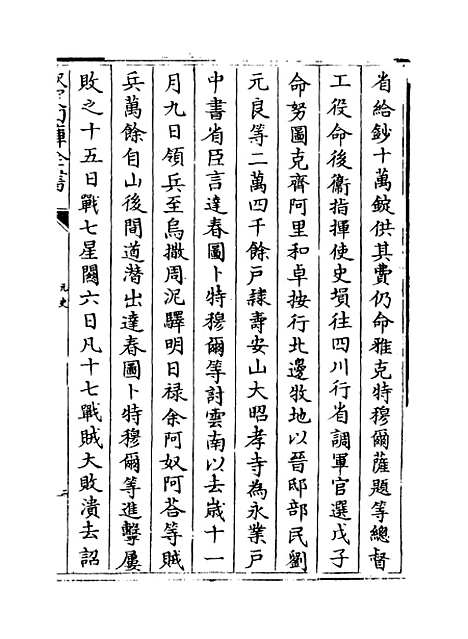 省給鈔十萬錠供其費仍命雅克特穆爾薩題等總督
工役命後衛指揮使史塤往四川行省調軍官選戊子
命努圖克齊阿里和卓按行北邊牧地以晉邸部民劉
元良等二萬四千餘戸隸壽安山大昭孝寺為永業戸
中書省臣言達春圖卜特穆爾等討雲南以去歲十一
月九日領兵至烏撒周泥驛明日禄余阿奴阿荅等賊
兵萬餘自山後間道潛出達春圖卜特穆爾等進擊屢
敗之十五日戰七星關六日凡十七戰賊大敗潰去詔
欽定四庫全書
元史